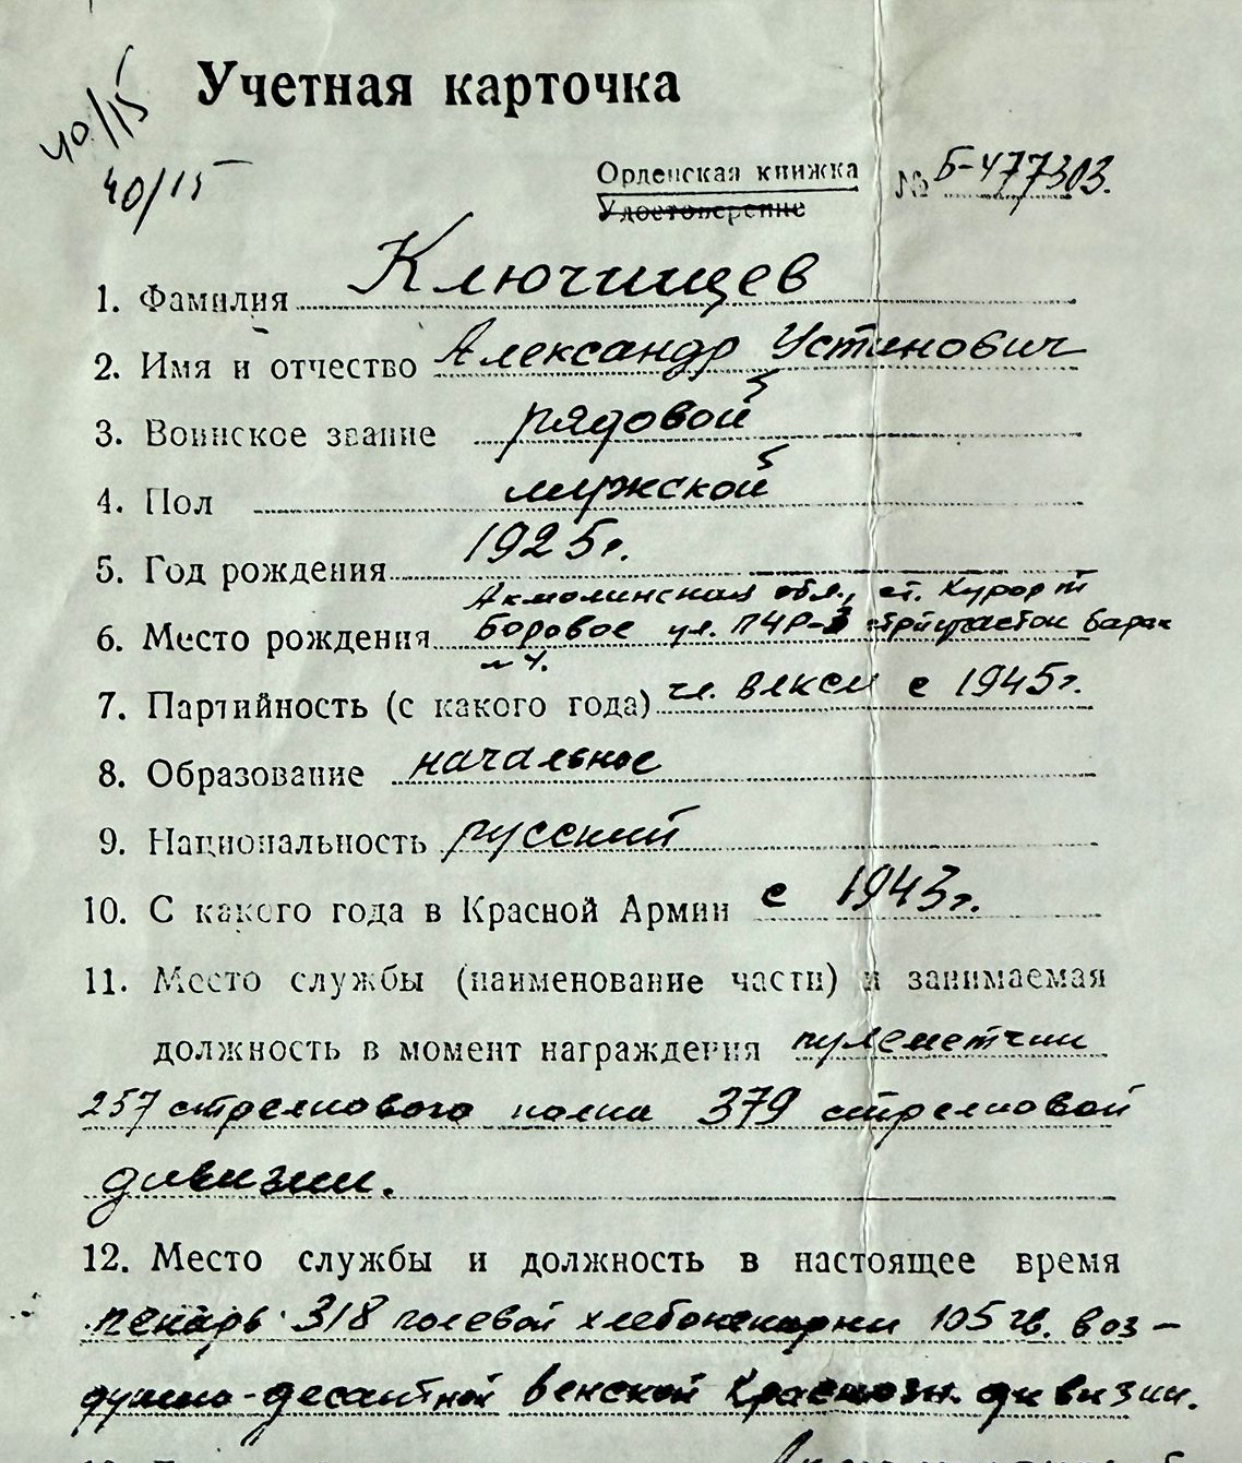 Учетная карточка
40/15
40/15
Орденская книжка № Б-477303.
Удостоверение
1. Фамилия Ключищев
2. Имя и отчество Александр Устинович
3. Воинское звание рядовой
4. Пол мужской
5. Год рождения 1925г.
Акмолинская обл., ст. Курорт
6. Место рождения Боровое ул. ПЧР-3 стройучасток барак
№ 4.
7. Партийность (с какого года) чл. ВЛКСМ с 1945г.
8. Образование начальное
9. Национальность русский
10. С какого года в Красной Армии с 1943г.
11. Место службы (наименование части) и занимаемая
должность в момент награждения пулеметчик
257 стрелкового полка 379 стрелковой
дивизии.
12. Место службы и должность в настоящее время
пекарь 318 полевой хлебопекарни 105 гв. воз-
душно-десантной Венской Краснозн. дивизии.